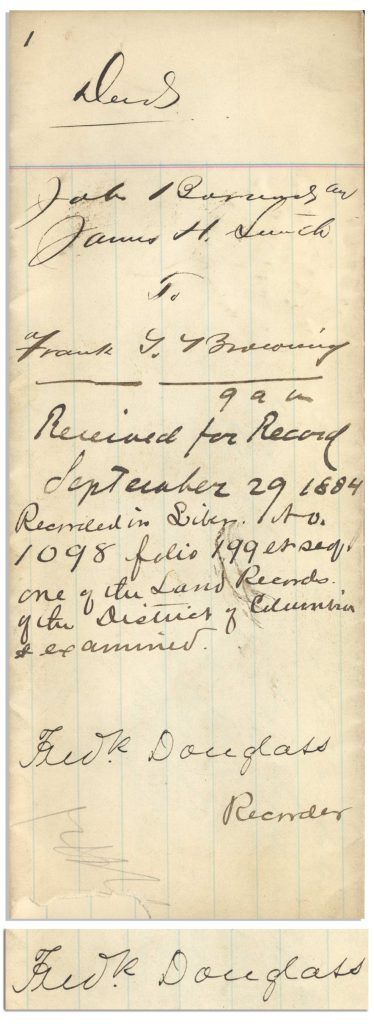 1
Deed
John Barnard and
James H. Smith
To
Frank T. Browning
9 a m
Received for Record
September 29 1884
Recorded in Liber. No.
1098 folio 199 et seq.
one of the Land Records
of the District of Columbia
& examined.
Fredk. Douglass
Recorder
Fredk. Douglass